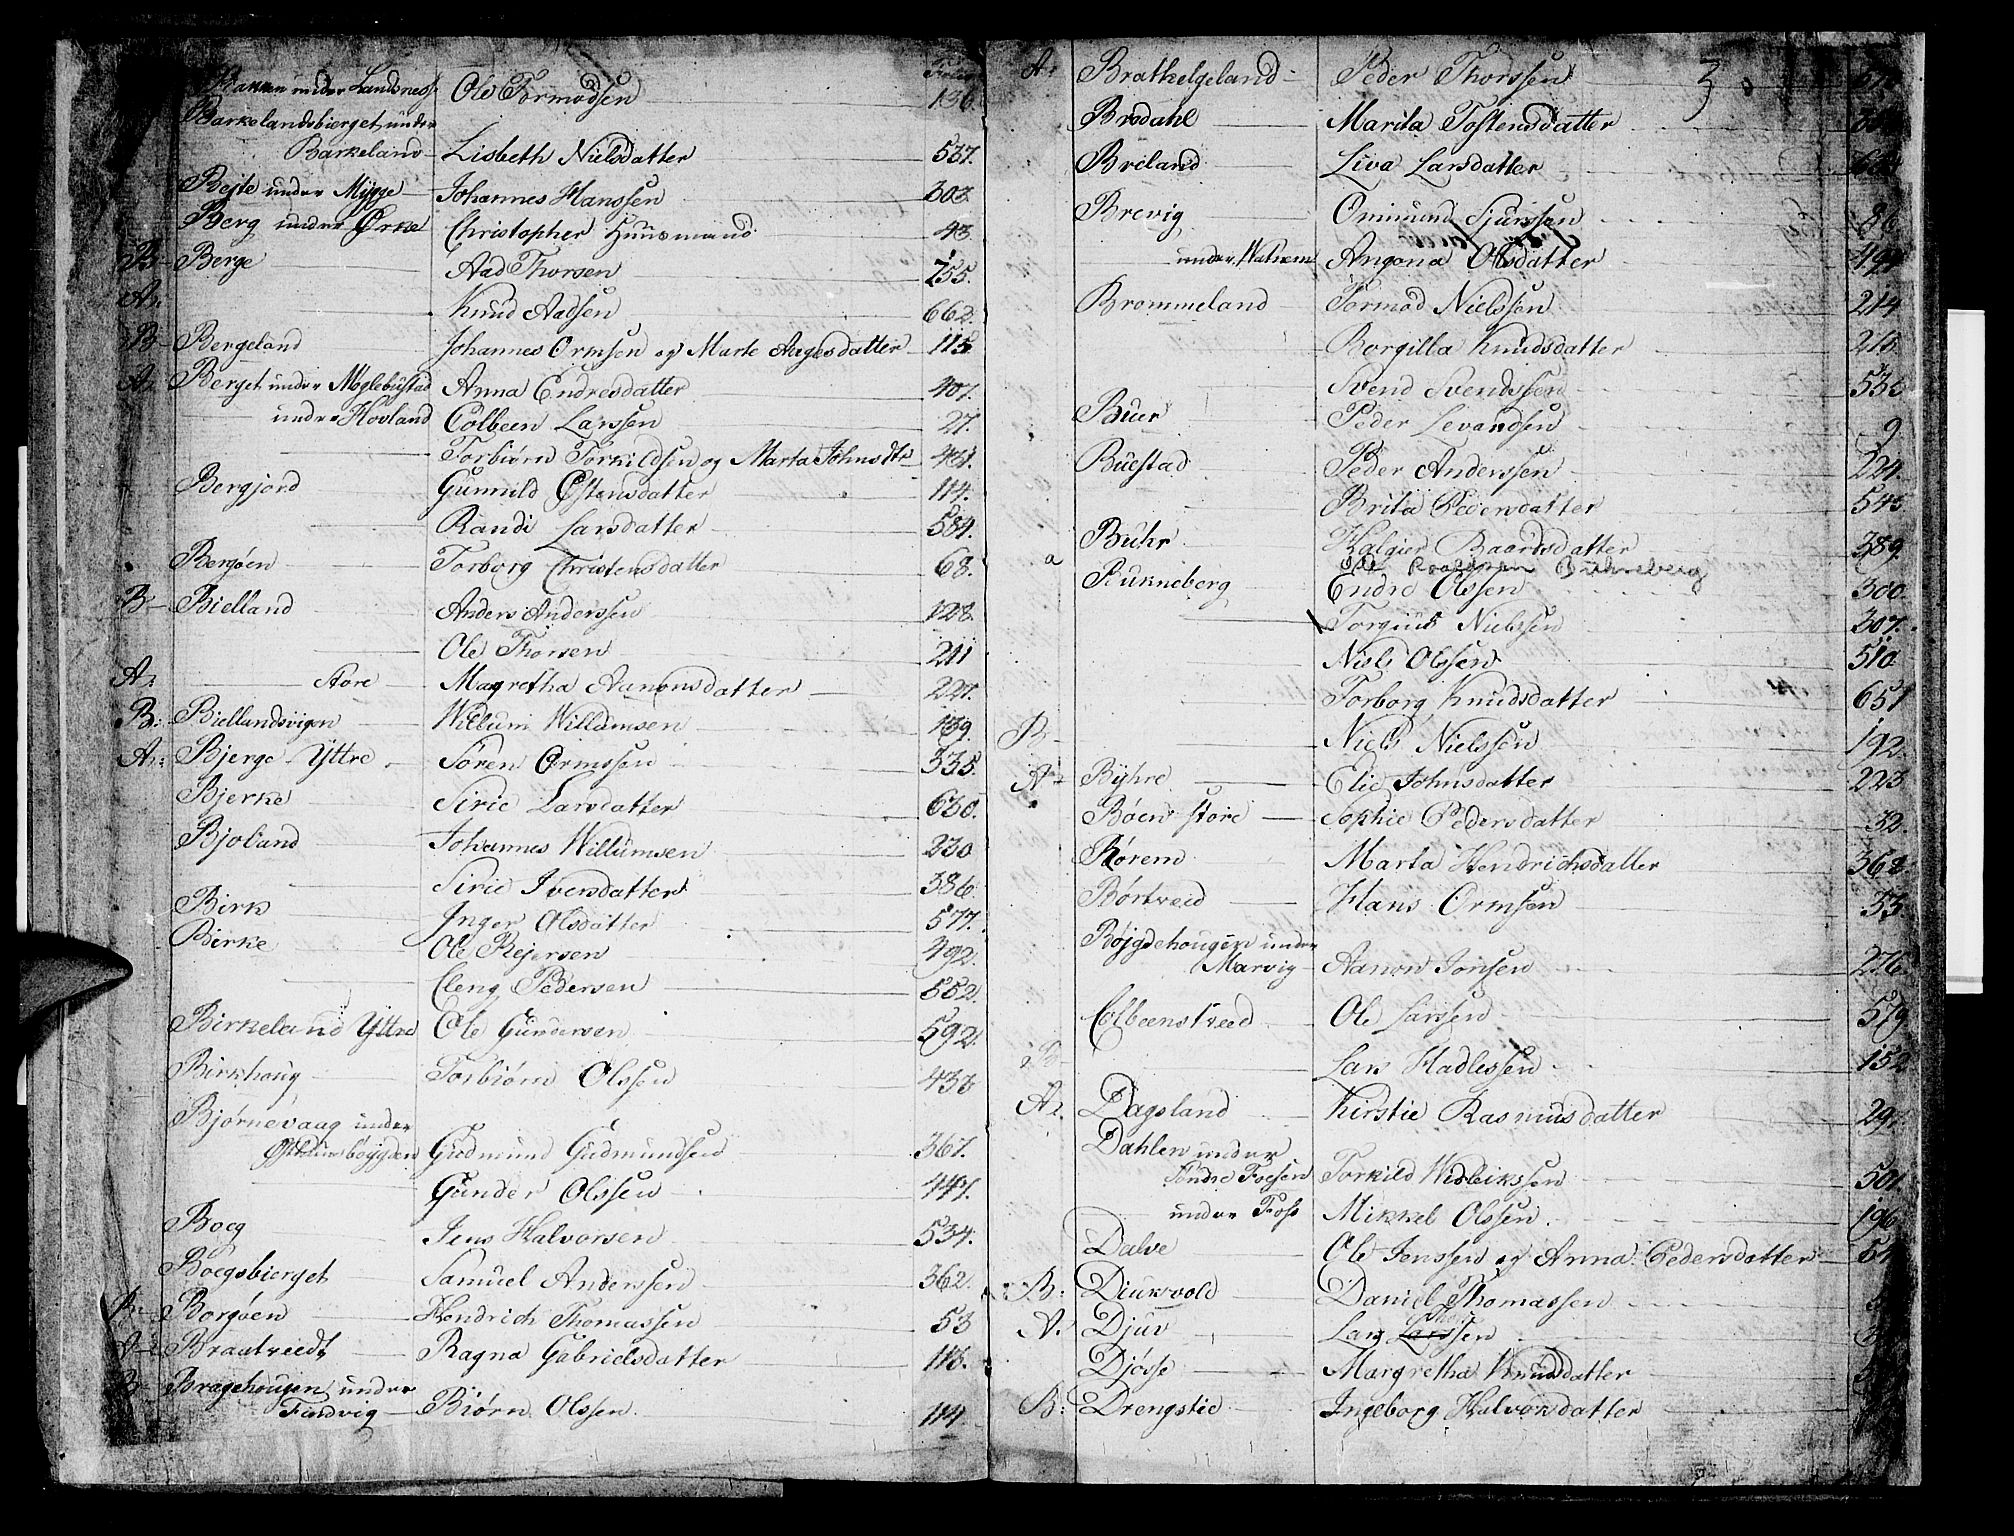 Folio
Bakken under Landsness Ole Tormodsen 136.
Barkelandsbierget under
Barkeland Lisbeth Nielsdatter 537.
Bejte under Mygge Johannes Hanssen 303.
Berg under Ørke Christopher Huusmand 43
B Berge Aad Thorsen 255.
A: Knud Aadsen 662.
B Bergeland Johannes Ormsen og Marte Aagesdatter 115
A: Berget under Møglebustad Anna Endresdatter 407.
under Hovland Colbeen Larssen 27.
Torbiørn Torkildsen og Marta Johnsdtr 431.
Bergjord Gunnild Østensdatter 114.
Randi Larsdatter 584.
Bergøen Torborg Christensdatter 68.
B Bielland Anders Anderssen 128.
Ole Thorsen 211
A: store Magretha Aanonsdatter 227.
B: Biellandsvigen Willum Willumsen 139.
A: Bjerge Yttre Søren Ormssen 335.
Bjerke Sirie Larsdatter 630.
Bjoland Johannes Willumsen 230
Sirie Iversdatter 386
Birk Inger Olsdatter 577.
Birke Ole Rejersen 492.
Cleng Pedersen 552.
Birkeland Yttre Ole Gundersen 592.
Birkhoug Torbiørn Olssen 433
Bjørnevaag under
Gudmund Gudmundsen 367.
Gunder Olssen 447.
Boeg Jens Halvorsen 534.
Boegsbierget Samuel Anderssen 362.
B: Borgøen Hendrich Thomassen 53
A: Braatveedt Ragna Gabrielsdatter 116.
B Bragehougen under
Findvig Biørn Olssen 114
A: Brathelgeland Peder Thorssen 3.
Brødahl Marita Tostensdatter
Breland Liva Larsdatter
Brevig Ommund Sjurssen 86
under Watnem Angona Olsdatter 497
Brommeland Tormod Nielssen 214
Borgilla Knudsdatter 215.
Svend Svendssen 535
Buer Peder Levandsen 9
Buestad Peder Anderssen 224.
Brita Pedersdatter 545
Buhr Halgier Baardsdatter 389.
a Bukneberg Endre Olssen 300.
Torgius Nielssen 307.
Niels Olssen 510
Torborg Knudsdatter 651
B Niels Nielssen 192.
A: Byhre Elie Johnsdatter 223
Bøen store Sophie Pedersdatter 32.
Børem Marta Hendrichsdatter 368
Børtveed Hans Ormsen 55
Bøjgdehougen under
Marvig Aanon Jonsen 276.
Colbeenstveed Ole Larssen 579
B Lars Hadlessen 152
A: Dagsland Kirstie Rasmusdatter 29.
Dahlen under
Søndre Foesen Torkild Widleikssen 501.
under Foss Mikkel Olssen 196
Dalve Ole Jenssen og Anna Pedersdatter
B: Diukvold Daniel Thomassen
A: Djuv Lars Larssen
Djøsse Margretha Knudsdatter
B: Drengstie Ingeborg Halvorsdatter